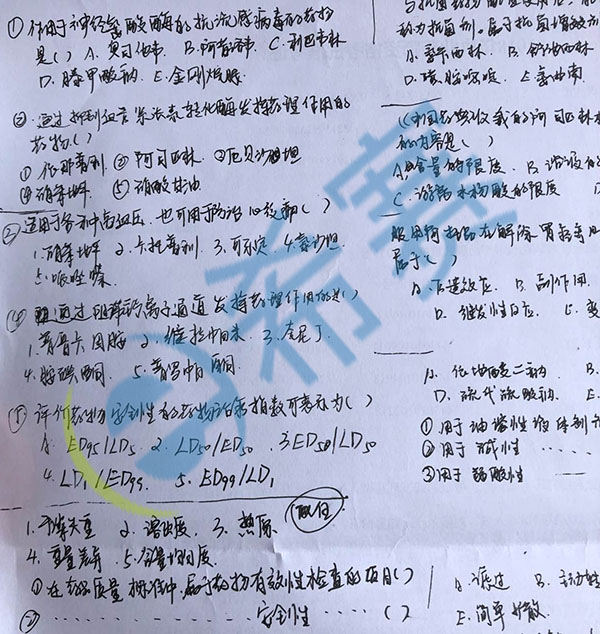 ① 作用于神经氨酸酶的抗流感病毒的药物
是( ) A. 奥司他韦 B. 阿昔洛韦 C. 利巴韦林
D. 膦甲酸钠 E. 金刚烷胺
② 通过抑制血管紧张素转化酶发挥药理作用的
药物( )
① 依那普利 ② 阿司匹林 ③ 厄贝沙坦
④ 硝苯地平 ⑤ 硝酸甘油
③ 适用于各种高血压,也可用于防治心绞痛( )
1. 硝苯地平 2. 卡托普利 3. 可乐定 4. 氯沙坦
5. 哌唑嗪
④ 通过阻滞钙离子通道发挥药理作用的是( )
1. 普鲁卡因胺 2. 维拉帕米 3.
4. 胺碘酮 5. 普罗帕酮
⑤ 评价药物安全性的药物治疗指数可表示为( )
1. ED95/LD5 2. LD50/ED50 3. ED50/LD50
4. LD1/ED99 5. ED99/LD1
配伍
1. 干燥失重 2. 溶出度 3. 热原
4. 重量差异 5. 含量均匀度
① 在药品质量标准中,属于药物有效性检查的项目( )
② ………… 安全性 ……( )
抗菌剂,属于抗菌增效
A. 氨苄西林 B. 舒他西林
E. 舒巴坦
《中国药典》收载的阿司匹林
的内容是( )
A. 含量的限度 B. 溶液的
C. 游离水杨酸的限度 D
服用阿托品在解除胃肠痉
属于( )
A. 后遗效应 B. 副作用
D. 继发性反应 E. 变
A. 依地酸二钠 B.
D. 硫代硫酸钠 E.
① 用于油溶性液体制
② 用于碱性 ……
③ 用于弱酸性
A. 滤过 B. 主动
E. 简单扩散
希赛